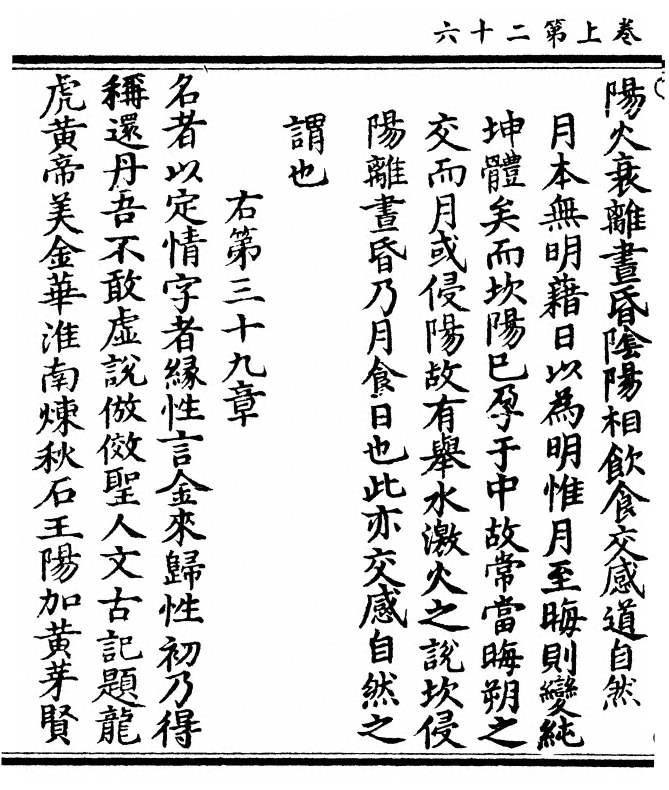 卷上第二十六
陽火衰離晝昏陰陽相飲食交感道自然
月本無明藉日以為明惟月至晦則變純
坤體矣而坎陽巳孕于中故常當晦朔之
交而月或侵陽故有舉水激火之說坎侵
陽離晝昏乃月食日也此亦交感自然之
謂也
右第三十九章
名者以定情字者緣性言金來歸性初乃得
稱還丹吾不敢虛說倣傚聖人文古記題龍
虎黃帝美金華淮南煉秋石王陽加黃芽賢